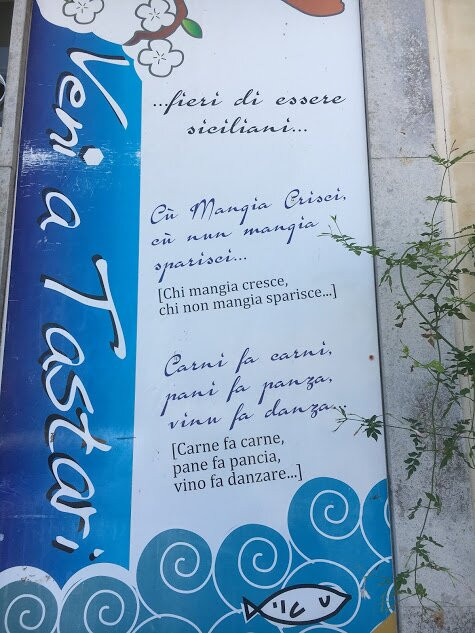 Veni a Tastari
...fieri di essere
siciliani...
Cù Mangia Crisci,
cù nun mangia
sparisci...
[Chi mangia cresce,
chi non mangia sparisce...]
Carni fa carni,
pani fa panza,
vinu fa danza...
[Carne fa carne,
pane fa pancia,
vino fa danzare...]